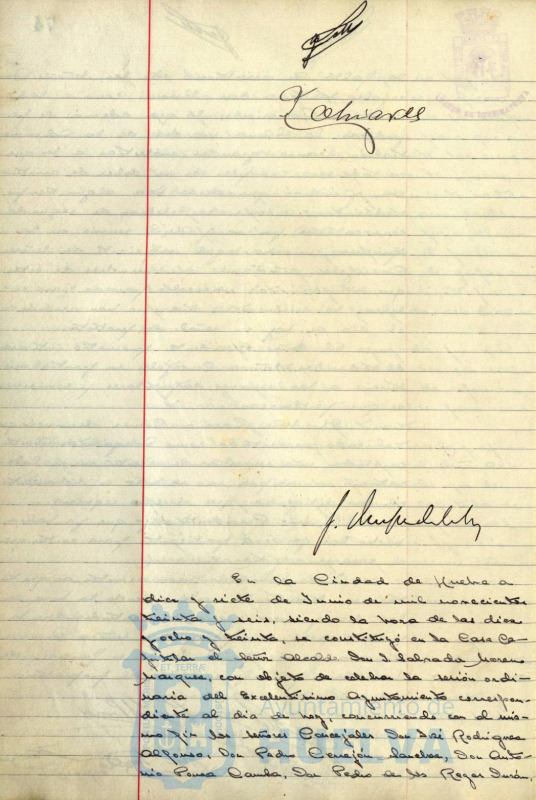 En la Ciudad de Huelva a
diez y siete de Junio de mil novecientos
treinta y seis, siendo la hora de las diez
y ocho y treinta, se constituyó en la Casa Ca-
pitular el Señor Alcalde Don Salvador Moreno
Márquez, con objeto de celebrar la sesión ordi-
naria del Excelentísimo Ayuntamiento correspon-
diente al día de hoy, concurriendo con el mis-
mo fin los señores Concejales Don José Rodríguez
Alfonso, Don Pedro Cerrejón Sánchez, Don Anto-
nio Pousa Camba, Don Pedro de los Reyes Durán,
Ayuntamiento de
HUELVA